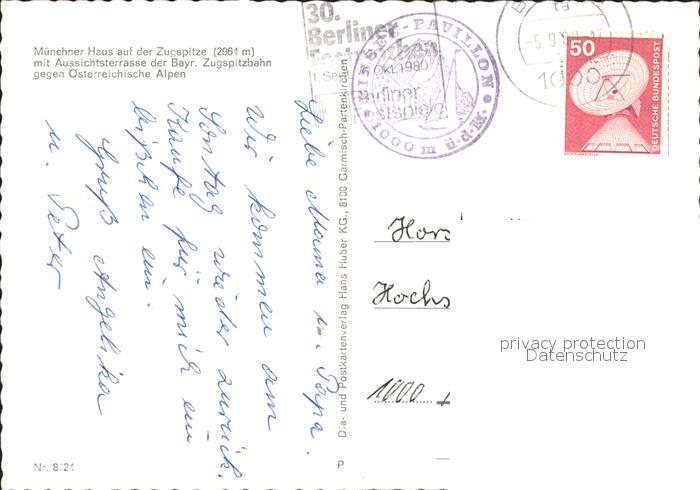 Münchner Haus auf der Zugspitze (2964 m)
mit Aussichtsterrasse der Bayr. Zugspitzbahn
gegen Österreichische Alpen
Liebe Mama u. Papa.
Wir kommen am
Sontag wieder zurück.
Kaufe für mich ein
bißchen ein.
Gruß Angelika
u. Peter
Nr. 8124
Dia- und Postkartenverlag Hans Huber KG., 8100 Garmisch-Partenkirchen
P
30.
Berliner
Festwochen
1. Sep
Okt. 1980
Berliner
Festspiele
PAVILLON
1000 m ü.d.M.
-5.9.
1000
50
DEUTSCHE BUNDESPOST
Hors
Hochs
1000
privacy protection
Datenschutz